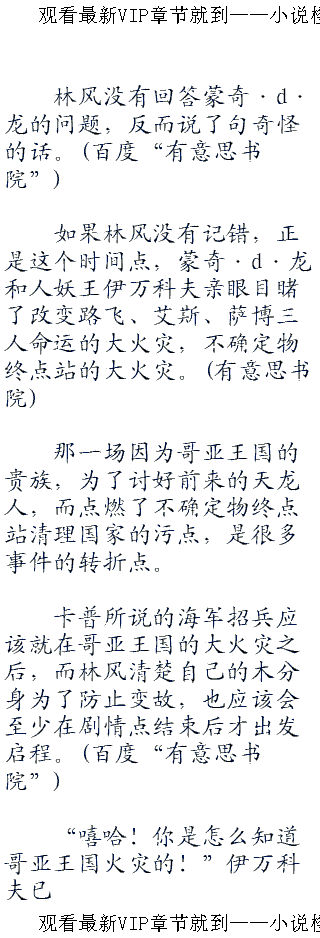 观看最新VIP章节就到——小说
林风没有回答蒙奇·d·
龙的问题，反而说了句奇怪
的话。(百度“有意思书
院”)
如果林风没有记错，正
是这个时间点，蒙奇·d·龙
和人妖王伊万科夫亲眼目睹
了改变路飞、艾斯、萨博三
人命运的大火灾，不确定物
终点站的大火灾。(有意思书
院)
那一场因为哥亚王国的
贵族，为了讨好前来的天龙
人，而点燃了不确定物终点
站清理国家的污点，是很多
事件的转折点。
卡普所说的海军招兵应
该就在哥亚王国的大火灾之
后，而林风清楚自己的木分
身为了防止变故，也应该会
至少在剧情点结束后才出发
启程。(百度“有意思书
院”)
“嘻哈！你是怎么知道
哥亚王国火灾的！”伊万科
夫已
观看最新VIP章节就到——小说